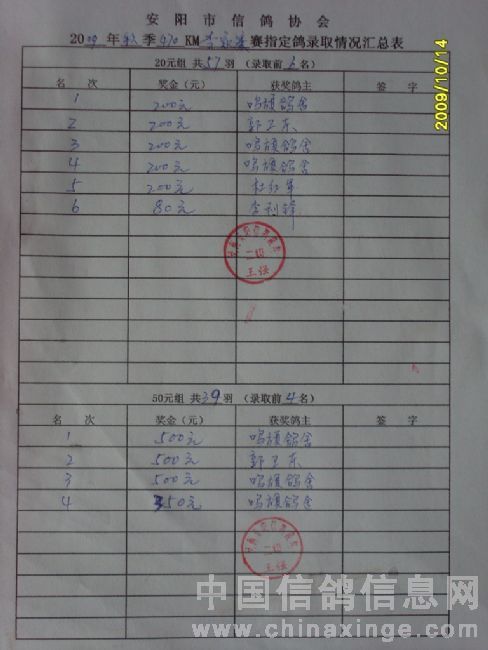 安阳市信鸽协会
2009年秋季470KM 赛指定鸽录取情况汇总表
20元组 共57羽 (录取前6名)
名 次 奖金(元) 获奖鸽主 签 字
1 200元 鸣旗鸽舍
2 200元 郭卫东
3 200元 鸣旗鸽舍
4 200元 鸣旗鸽舍
5 200元 杜红军
6 80元 李利锋
二级
王强
50元组 共39羽 (录取前4名)
名 次 奖金(元) 获奖鸽主 签 字
1 500元 鸣旗鸽舍
2 500元 郭卫东
3 500元 鸣旗鸽舍
4 350元 鸣旗鸽舍
二级
王强
2009/10/14
中国信鸽信息网
www.chinaxinge.com